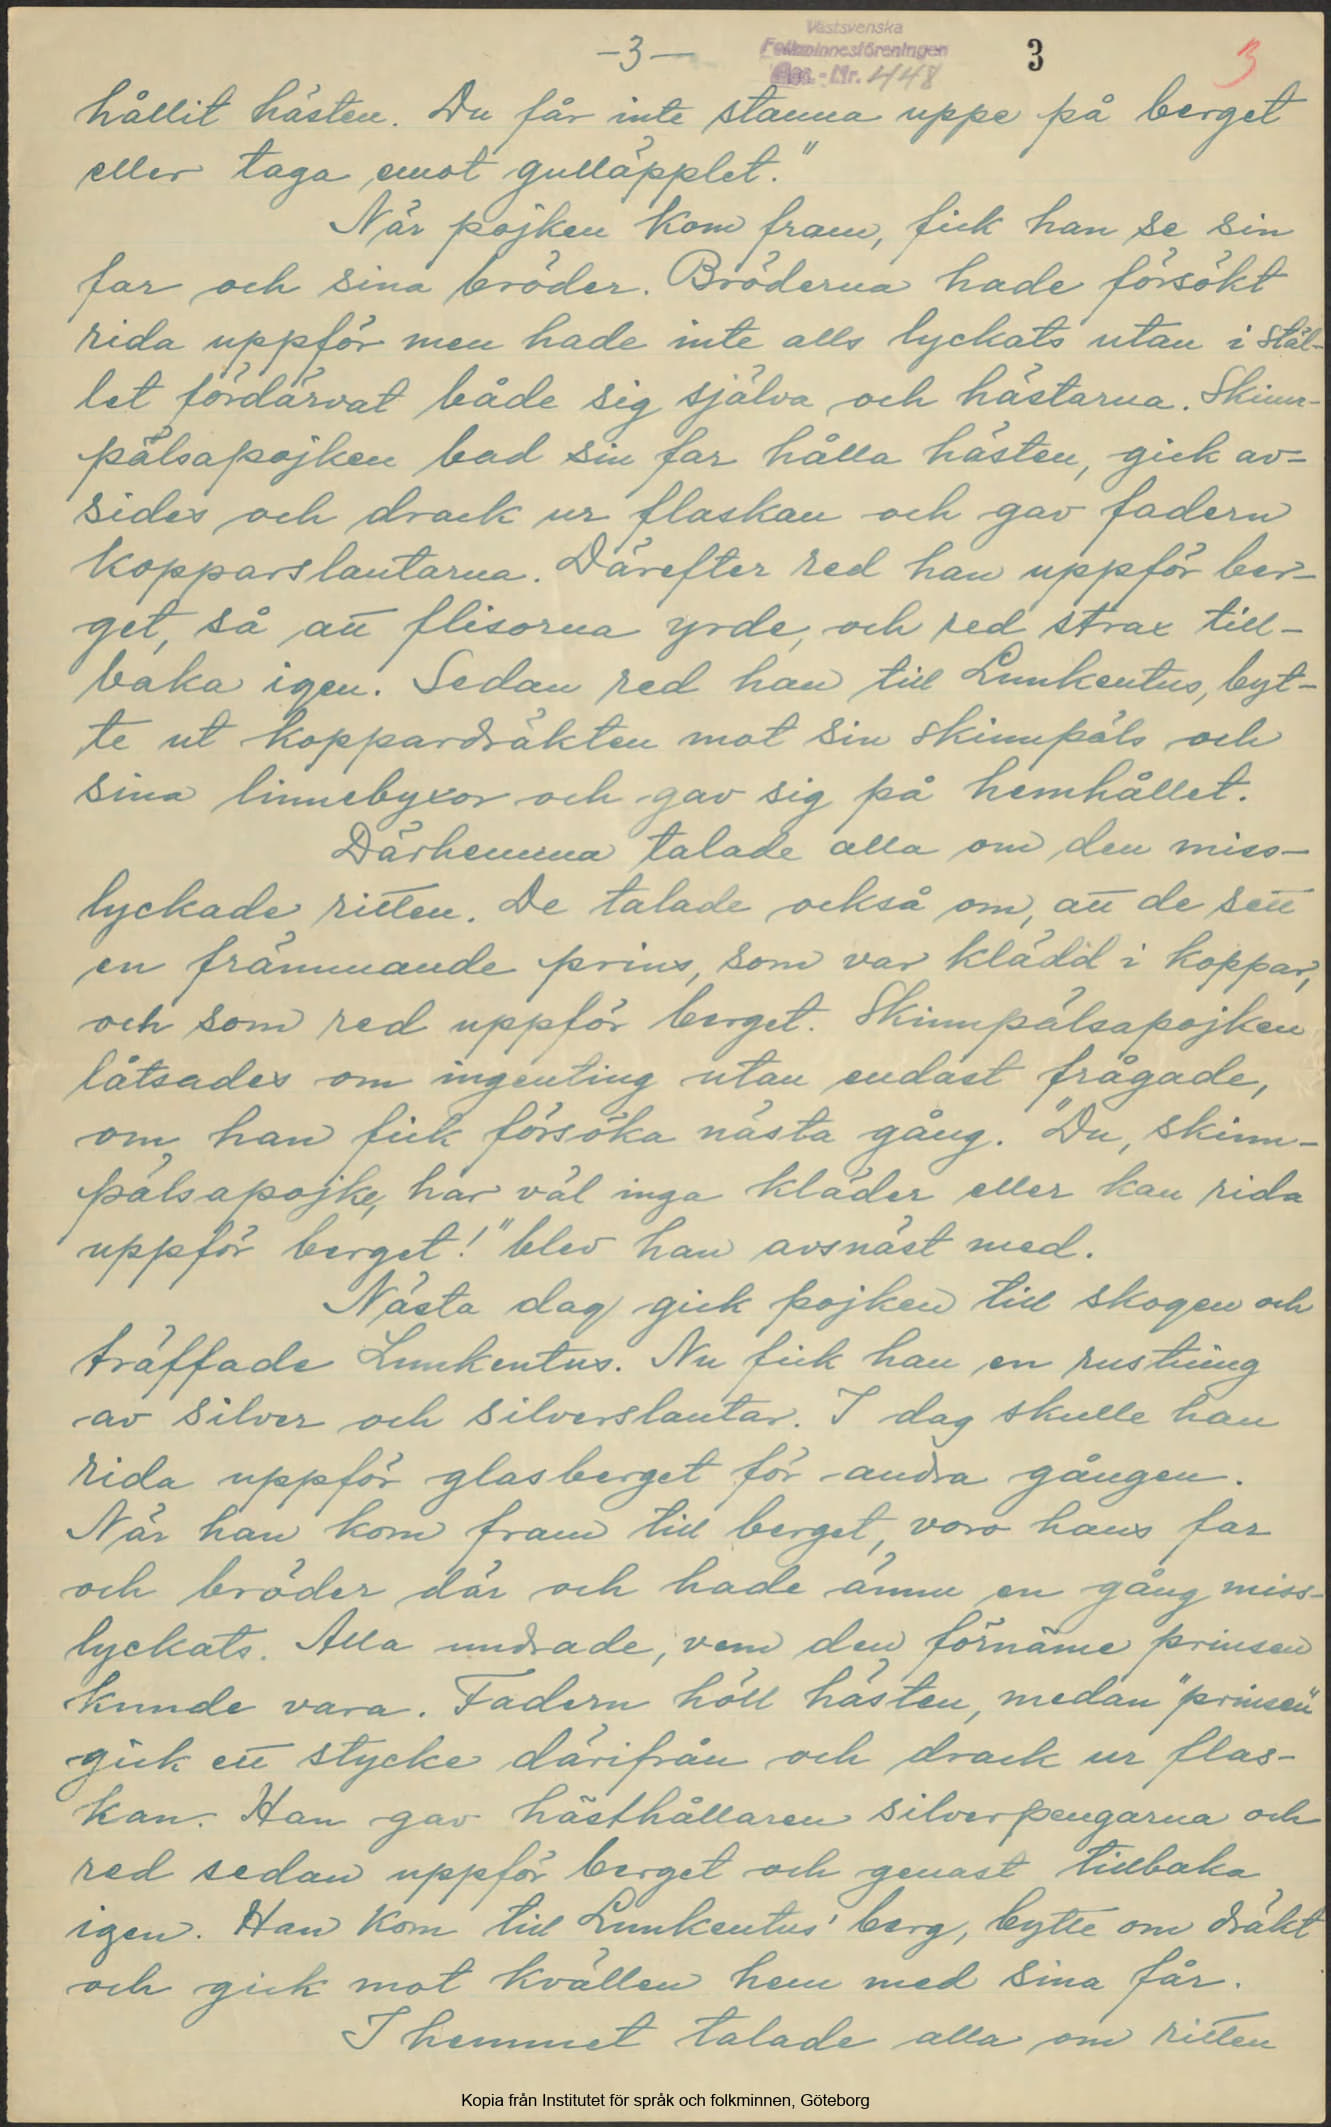 -3-
Västsvenska
Folkminnesföreningen
Acc.-Nr. 448
3
3
hållit hästen. Du får inte stanna uppe på berget
eller taga emot gulläpplet."
När pojken kom fram, fick han se sin
far och sina bröder. Bröderna hade försökt
rida uppför men hade inte alls lyckats utan i stäl-
let fördärvat både sig själva och hästarna. Skinn-
pälsapojken bad sin far hålla hästen, gick av-
sides och drack ur flaskan och gav fadern
kopparslantarna. Därefter red han uppför ber-
get, så att flisorna yrde, och red strax till-
baka igen. Sedan red han till Lunkentus, byt-
te ut koppardräkten mot sin skinnpäls och
sina linnebyxor och gav sig på hemhållet.
Därhemma talade alla om den miss-
lyckade ritten. De talade också om, att de sett
en främmande prins, som var klädd i koppar,
och som red uppför berget. Skinnpälsapojken
låtsades om ingenting utan endast frågade,
om han fick försöka nästa gång. "Du, skinn-
pälsapojke, har väl inga kläder eller kan rida
uppför berget!" blev han avsnäst med.
Nästa dag gick pojken till skogen och
träffade Lunkentus. Nu fick han en rustning
av silver och silverslantar. I dag skulle han
rida uppför glasberget för andra gången.
När han kom fram till berget, voro hans far
och bröder där och hade ännu en gång miss-
lyckats. Alla undrade, vem den förnäme prinsen
kunde vara. Fadern höll hästen, medan "prinsen"
gick ett stycke därifrån och drack ur flas-
kan. Han gav hästhållaren silverpengarna och
red sedan uppför berget och genast tillbaka
igen. Han kom till Lunkentus' berg, bytte om dräkt
och gick mot kvällen hem med sina får.
I hemmet talade alla om ritten
Kopia från Institutet för språk och folkminnen, Göteborg